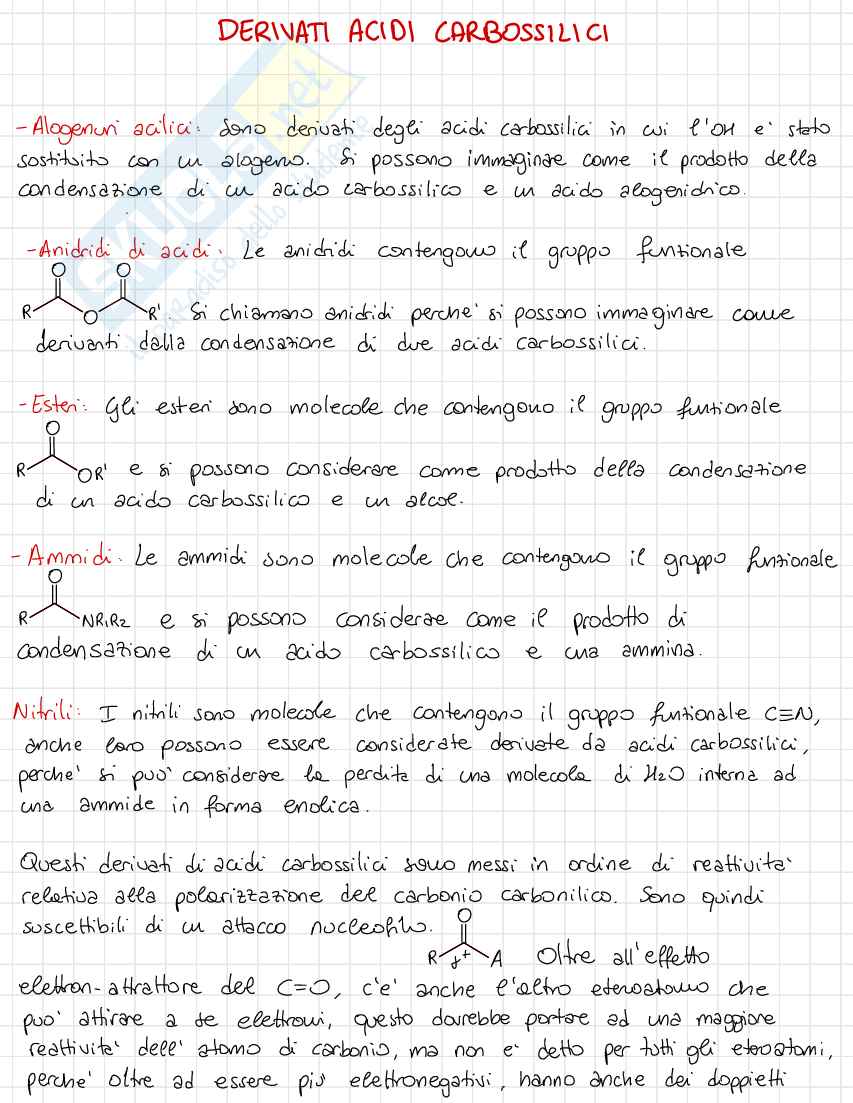 DERIVATI ACIDI CARBOSSILICI
- Alogenuri acilici: Sono derivati degli acidi carbossilici in cui l'OH e' stato
sostituito con un alogeno. Si possono immaginare come il prodotto della
condensazione di un acido carbossilico e un acido alogenidrico.
- Anidridi di acidi. Le anidridi contengono il gruppo funzionale
O O
R O R'. Si chiamano anidridi perche' si possono immaginare come
derivanti dalla condensazione di due acidi carbossilici.
- Esteri: Gli esteri sono molecole che contengono il gruppo funzionale
O
R OR' e si possono considerare come prodotto della condensazione
di un acido carbossilico e un alcol.
- Ammidi. Le ammidi sono molecole che contengono il gruppo funzionale
O
R NR1R2 e si possono considerare come il prodotto di
condensazione di un acido carbossilico e una ammina.
Nitrili: I nitrili sono molecole che contengono il gruppo funzionale C≡N,
anche loro possono essere considerate derivate da acidi carbossilici,
perche' si puo' considerare la perdita di una molecola di H2O interna ad
una ammide in forma enolica.
Questi derivati di acidi carbossilici sono messi in ordine di reattivita'
relativa alla polarizzazione del carbonio carbonilico. Sono quindi
suscettibili di un attacco nucleofilo.
O
R δ+ A Oltre all'effetto
elettron-attrattore del C=O, c'e' anche l'altro eteroatomo che
puo' attirare a se elettroni, questo dovrebbe portare ad una maggiore
reattivita' dell' atomo di carbonio, ma non e' detto per tutti gli eteroatomi,
perche' oltre ad essere piu elettronegativi, hanno anche dei doppietti
SKUOLA.net
il paradiso dello studente